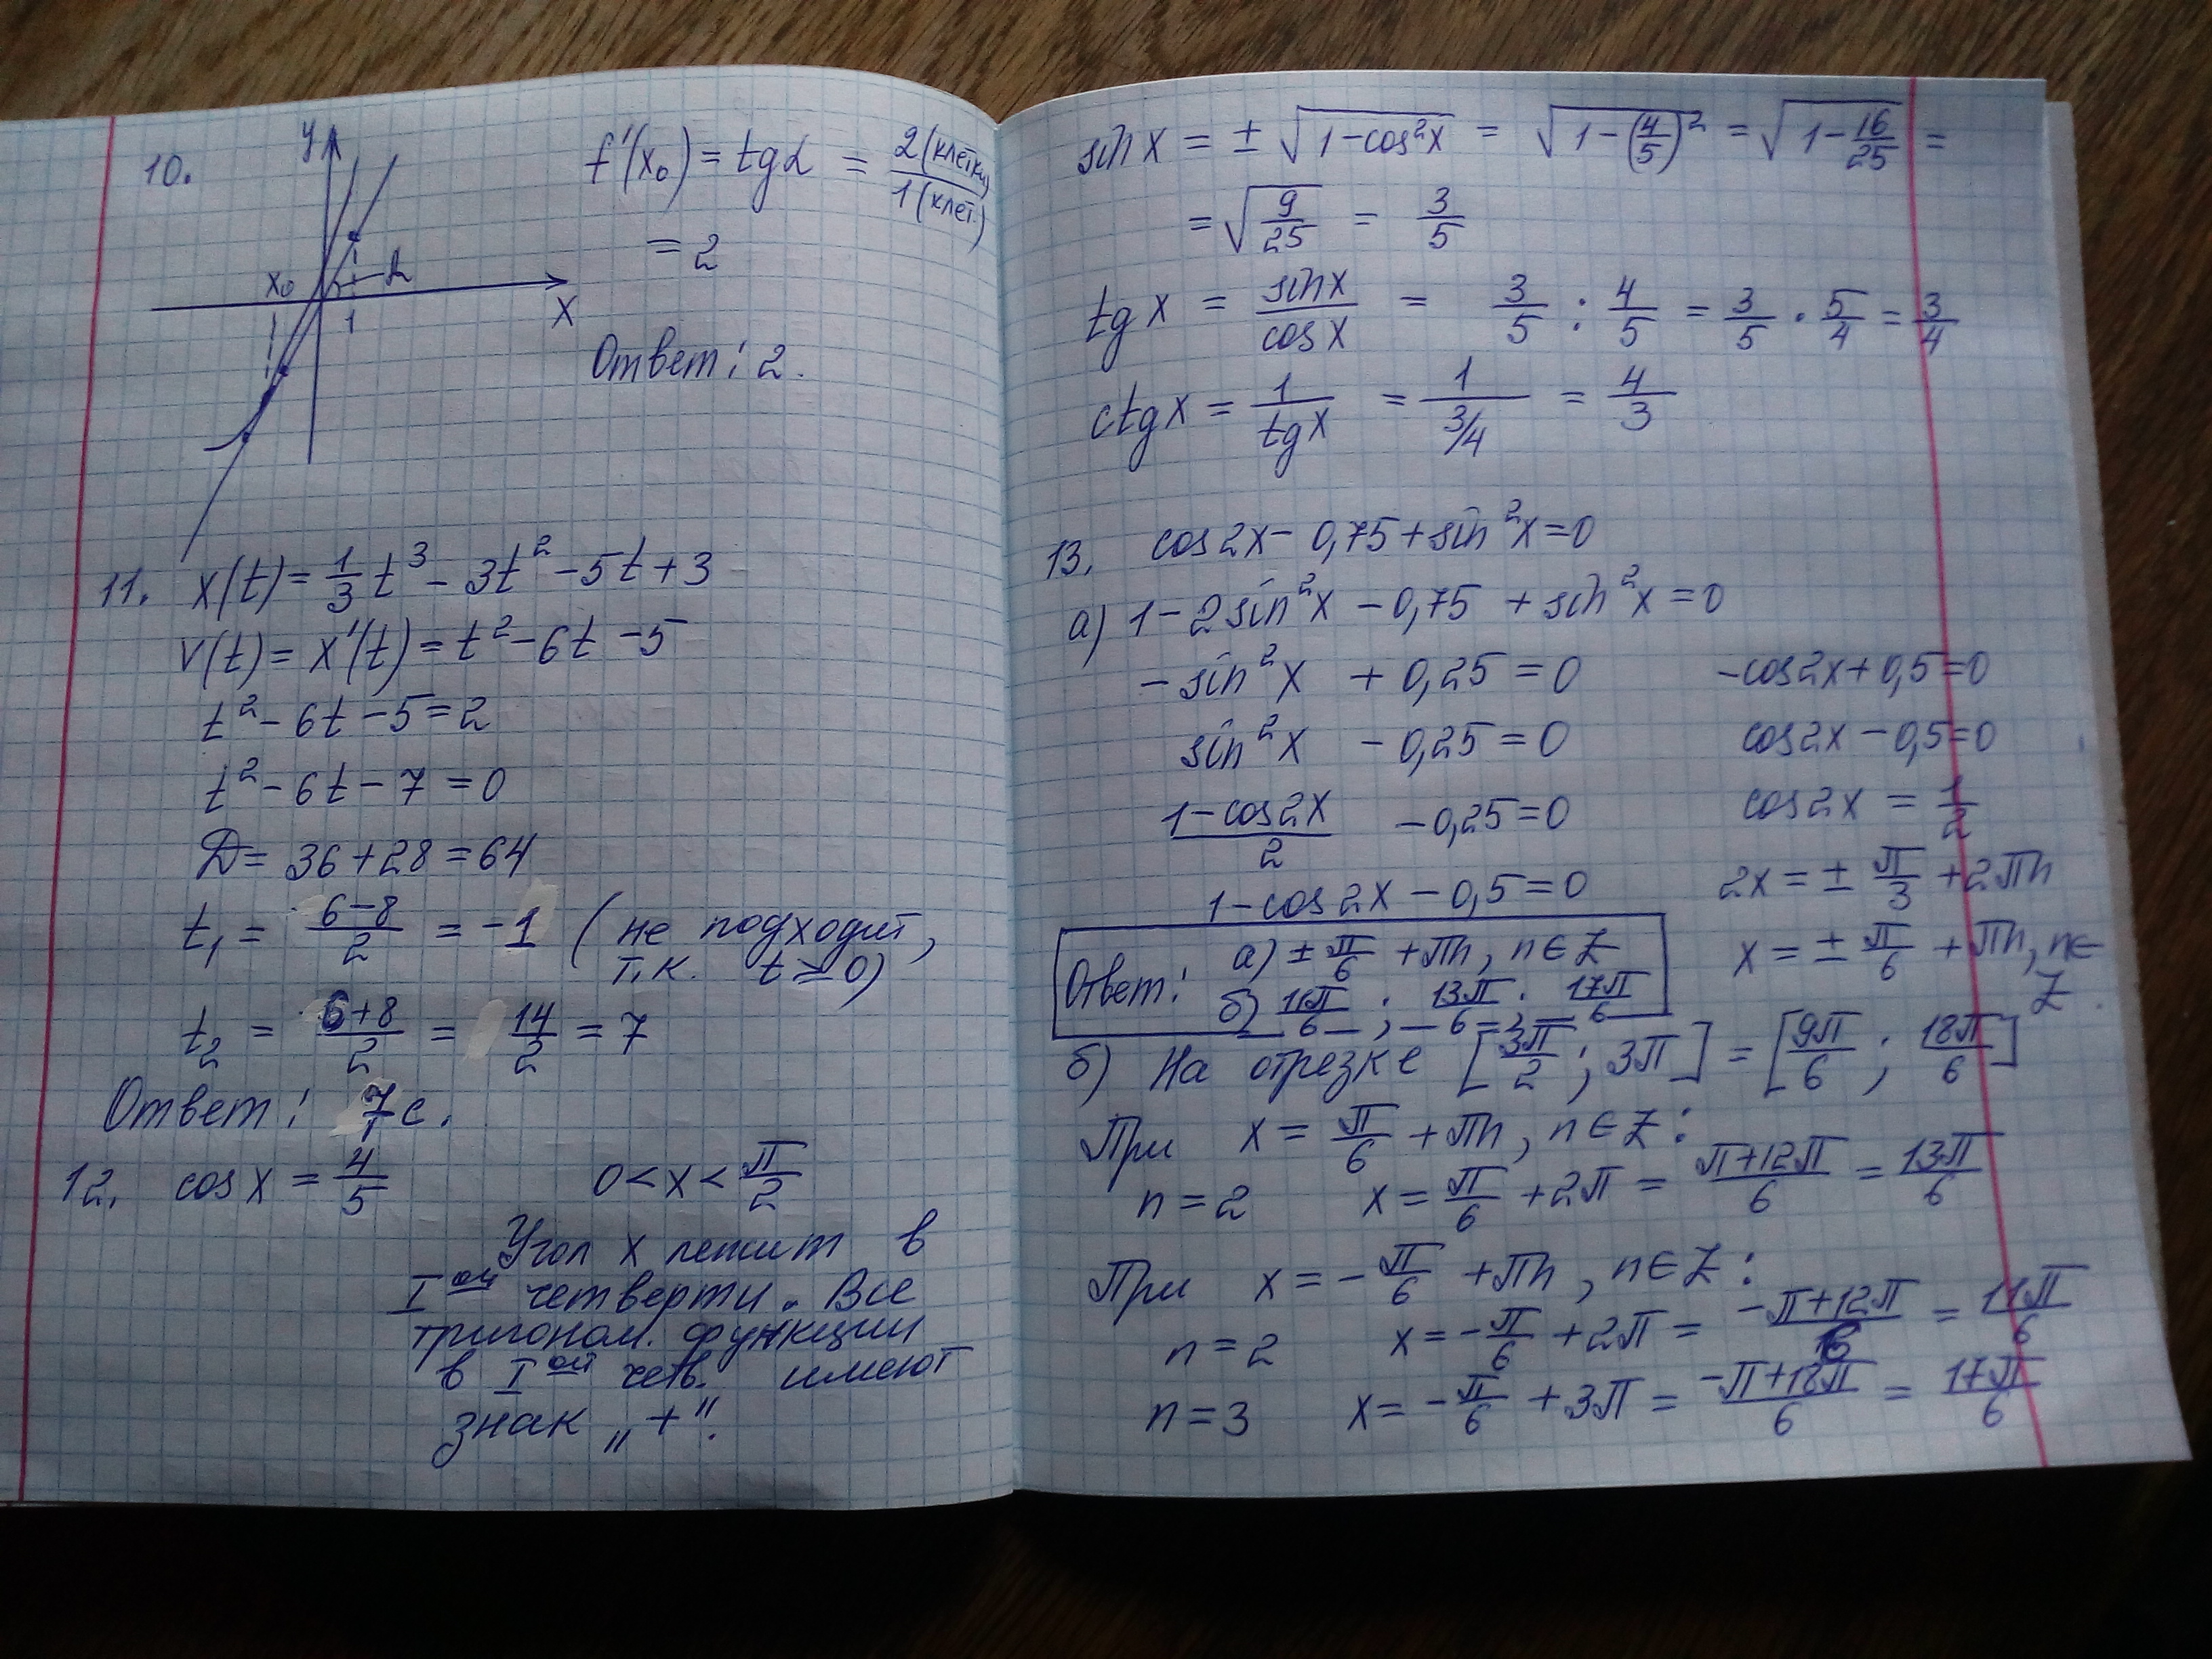 10.
y
x₀
α
1
x
f'(x₀) = tgα = 2(клетки)/1(клет.)
= 2
Ответ: 2.
11. x(t) = 1/3 t³ - 3t² - 5t + 3
v(t) = x'(t) = t² - 6t - 5
t² - 6t - 5 = 2
t² - 6t - 7 = 0
D = 36 + 28 = 64
t₁ = (6-8)/2 = -1 (не подходит,
т.к. t ≥ 0)
t₂ = (6+8)/2 = 14/2 = 7
Ответ: 7 с.
12. cos x = 4/5 0 < x < π/2
Угол x лежит в
Iой четверти. Все
тригоном. функции
в Iой четв. имеют
знак „+".
sin x = ± √(1-cos²x) = √(1-(4/5)²) = √(1-16/25) =
= √(9/25) = 3/5
tg x = sin x/cos x = 3/5 : 4/5 = 3/5 · 5/4 = 3/4
ctg x = 1/tg x = 1/(3/4) = 4/3
13. cos2x - 0,75 + sin²x = 0
а) 1 - 2sin²x - 0,75 + sin²x = 0
-sin²x + 0,25 = 0
sin²x - 0,25 = 0
(1-cos2x)/2 - 0,25 = 0
1 - cos2x - 0,5 = 0
-cos2x + 0,5 = 0
cos2x - 0,5 = 0
cos2x = 1/2
2x = ± π/3 + 2πn
x = ± π/6 + πn, n ∈
Z.
Ответ: а) ± π/6 + πn, n ∈ Z
б) 11π/6; 13π/6; 17π/6
б) На отрезке [3π/2; 3π] = [9π/6; 18π/6]
При x = π/6 + πn, n ∈ Z:
n = 2 x = π/6 + 2π = (π+12π)/6 = 13π/6
При x = -π/6 + πn, n ∈ Z:
n = 2 x = -π/6 + 2π = (-π+12π)/6 = 11π/6
n = 3 x = -π/6 + 3π = (-π+18π)/6 = 17π/6